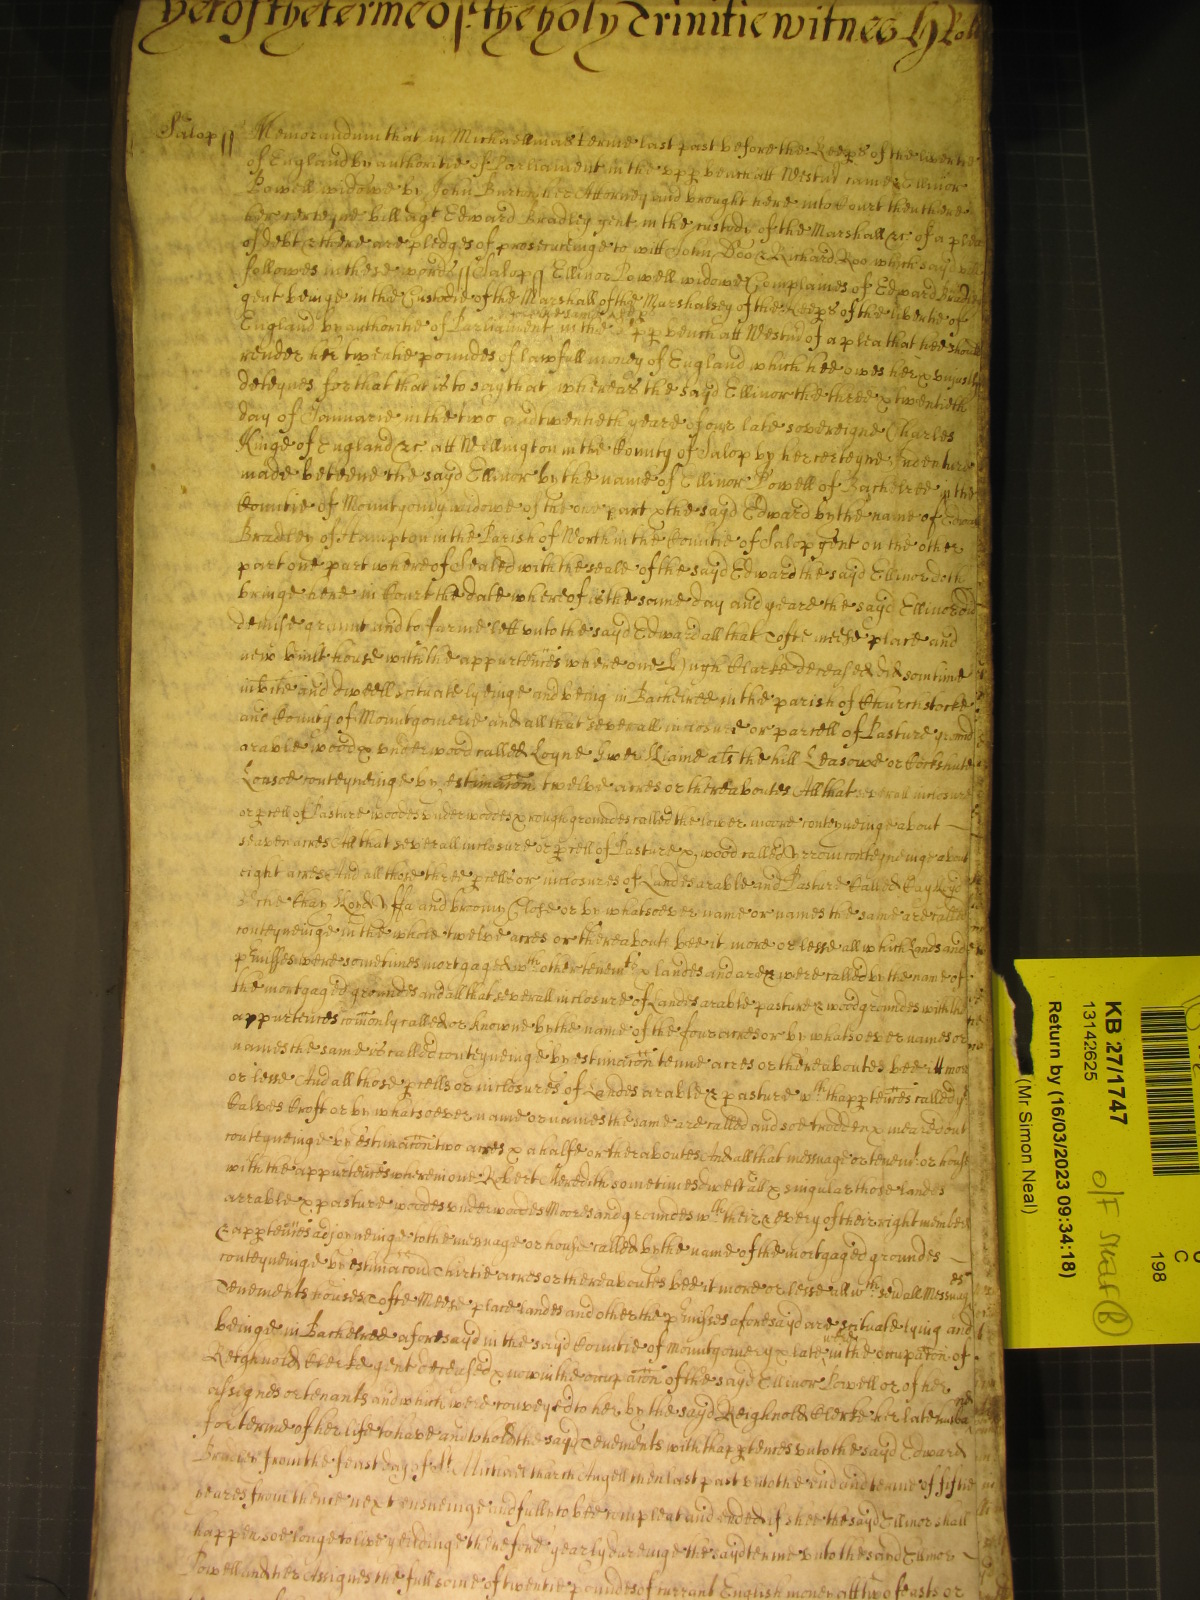 yet of the terme of the holy Trinitie witnes H Roll
Salop ss Memorandum that in Michaellmas terme last past before the Keeprs of the libertie
of England by authoritie of Parliament in the upp bench att Westmr came Ellinor
Powell widowe by John Burton her Attorney and brought here into Court then there
her certeyne bill agt Edward Bradley gent in the custody of the Marshall &c of a plea
of debt & there are pledges of prosecutinge to witt John Doo & Richard Roo which sayd bill
followes in these words ss Salop ss Ellinor Powell widowe Complaines of Edward Bradley
gent beinge in the Custodie of the Marshall of the Marshalsey of the Keeprs of the libertie of
England by authoritie of Parliament in the upp bench att Westmr of a plea that hee should
render her twentie poundes of lawfull money of England which hee owes her & unjustly
deteynes for that that is to say that whereas the sayd Ellinor the three & twentieth
day of Januarie in the two and twentieth yeare of our late sovereigne Charles
Kinge of England &c att Wellington in the County of Salop by her certeyne Indenture
made betweene the sayd Ellinor by the name of Ellinor Powell of Bachelree in the
Countie of Mountgomy widowe of the one part & the sayd Edward by the name of Edward
Bradley of Hampton in the Parish of Worth in the Countie of Salop gent on the other
part one part whereof Sealed with the seale of the sayd Edward the sayd Ellinor doth
bringe here in Court the date whereof is the same day and yeare the sayd Ellinor did
demise graunt and to farme lett unto the sayd Edward all that Tofte meese place and
new built house with the appurtences where one Hugh Clarke deceased did somtime
inhite and dwell scituate lyeinge and being in Bachelree in the parish of Churchstocke
and County of Mountgomerie and all that severall inclosure or parcell of Pasture ground
arable wood & underwood called Loyne Hwer als the hill Leasowe or Cockshute
Leasoe conteyneinge by estimacon twelve acres or thereaboutes All that severall inclosure
or pcell of Pasture woodes underwoodes & rough groundes called the lower moore conteyneinge about
seaven acres All that severall inclosure or pcell of Pasture & wood called conteyneinge about
eight acres And all those three pcells or inclosures of Landes arable and Pasture Called
and broomy Close or by whatsoever name or names the same are called
conteyneinge in the whole twelve acres or thereabouts bee it more or lesse all which Lands and
pmisses were sometimes mortgaged wth other tenemts & landes and are & were called by the name of
the mortgaged groundes and all that severall inclosure of Landes arable pasture & wood groundes with the
appurtences comonly called or knowne by the name of the four acres or by whatsoever names or
names the same is called conteyneinge by estimacon tenne acres or thereaboutes bee itt more
or lesse And all those pcells or inclosures of Landes arable & pasture wth thapptences called ye
Calves Croft or by whatsoever name or names the same are called and soe trodden & meared out
conteyneinge by estimacon two acres & a halfe or theraboutes And all that messuage or tenemt or house
with the appurtences wherein one Robert Meredith sometimes dwelt all & singular those landes
arrable & pasture woodes underwoodes Moores and groundes wth their & every of their right members
& apptences adjoyneinge to the messuage or house called by the name of the mortgaged groundes
conteyneinge by estimacon Thirtie acres or thereaboutes bee it more or lesse all wch sevall Messuages
Tenements houses Tofte Meese place landes and other the pmisses aforesayd are scituate lying and
beinge in Bachelree aforesayd in the sayd Countie of Mountgomery & late were in the occupacon of
Reighnold Clerke gent deceased & now in the occupacon of the sayd Ellinor Powell or of her
assignes or tenants and which were conveyed to her by the sayd Reighnold Clerke her late husband
for terme of her life to have and to hold the sayd Tenements with thapptences unto the sayd Edward
Bradley from the feast day of St Michael tharch Angell then last past unto the end and terme of fiftie
yeares from thence next ensueinge and fully to bee compleat and ended if shee the sayd Ellinor shall
happen soe longe to live yeildinge therefore yearly dureinge the sayd terme unto the said Ellinor
Powell and her Assignes the full some of twentie poundes of currant English money att two feasts or
KB 27/1747
13142625
Return by (16/03/2023 09:34:18)
(Mr Simon Neal)
C
198